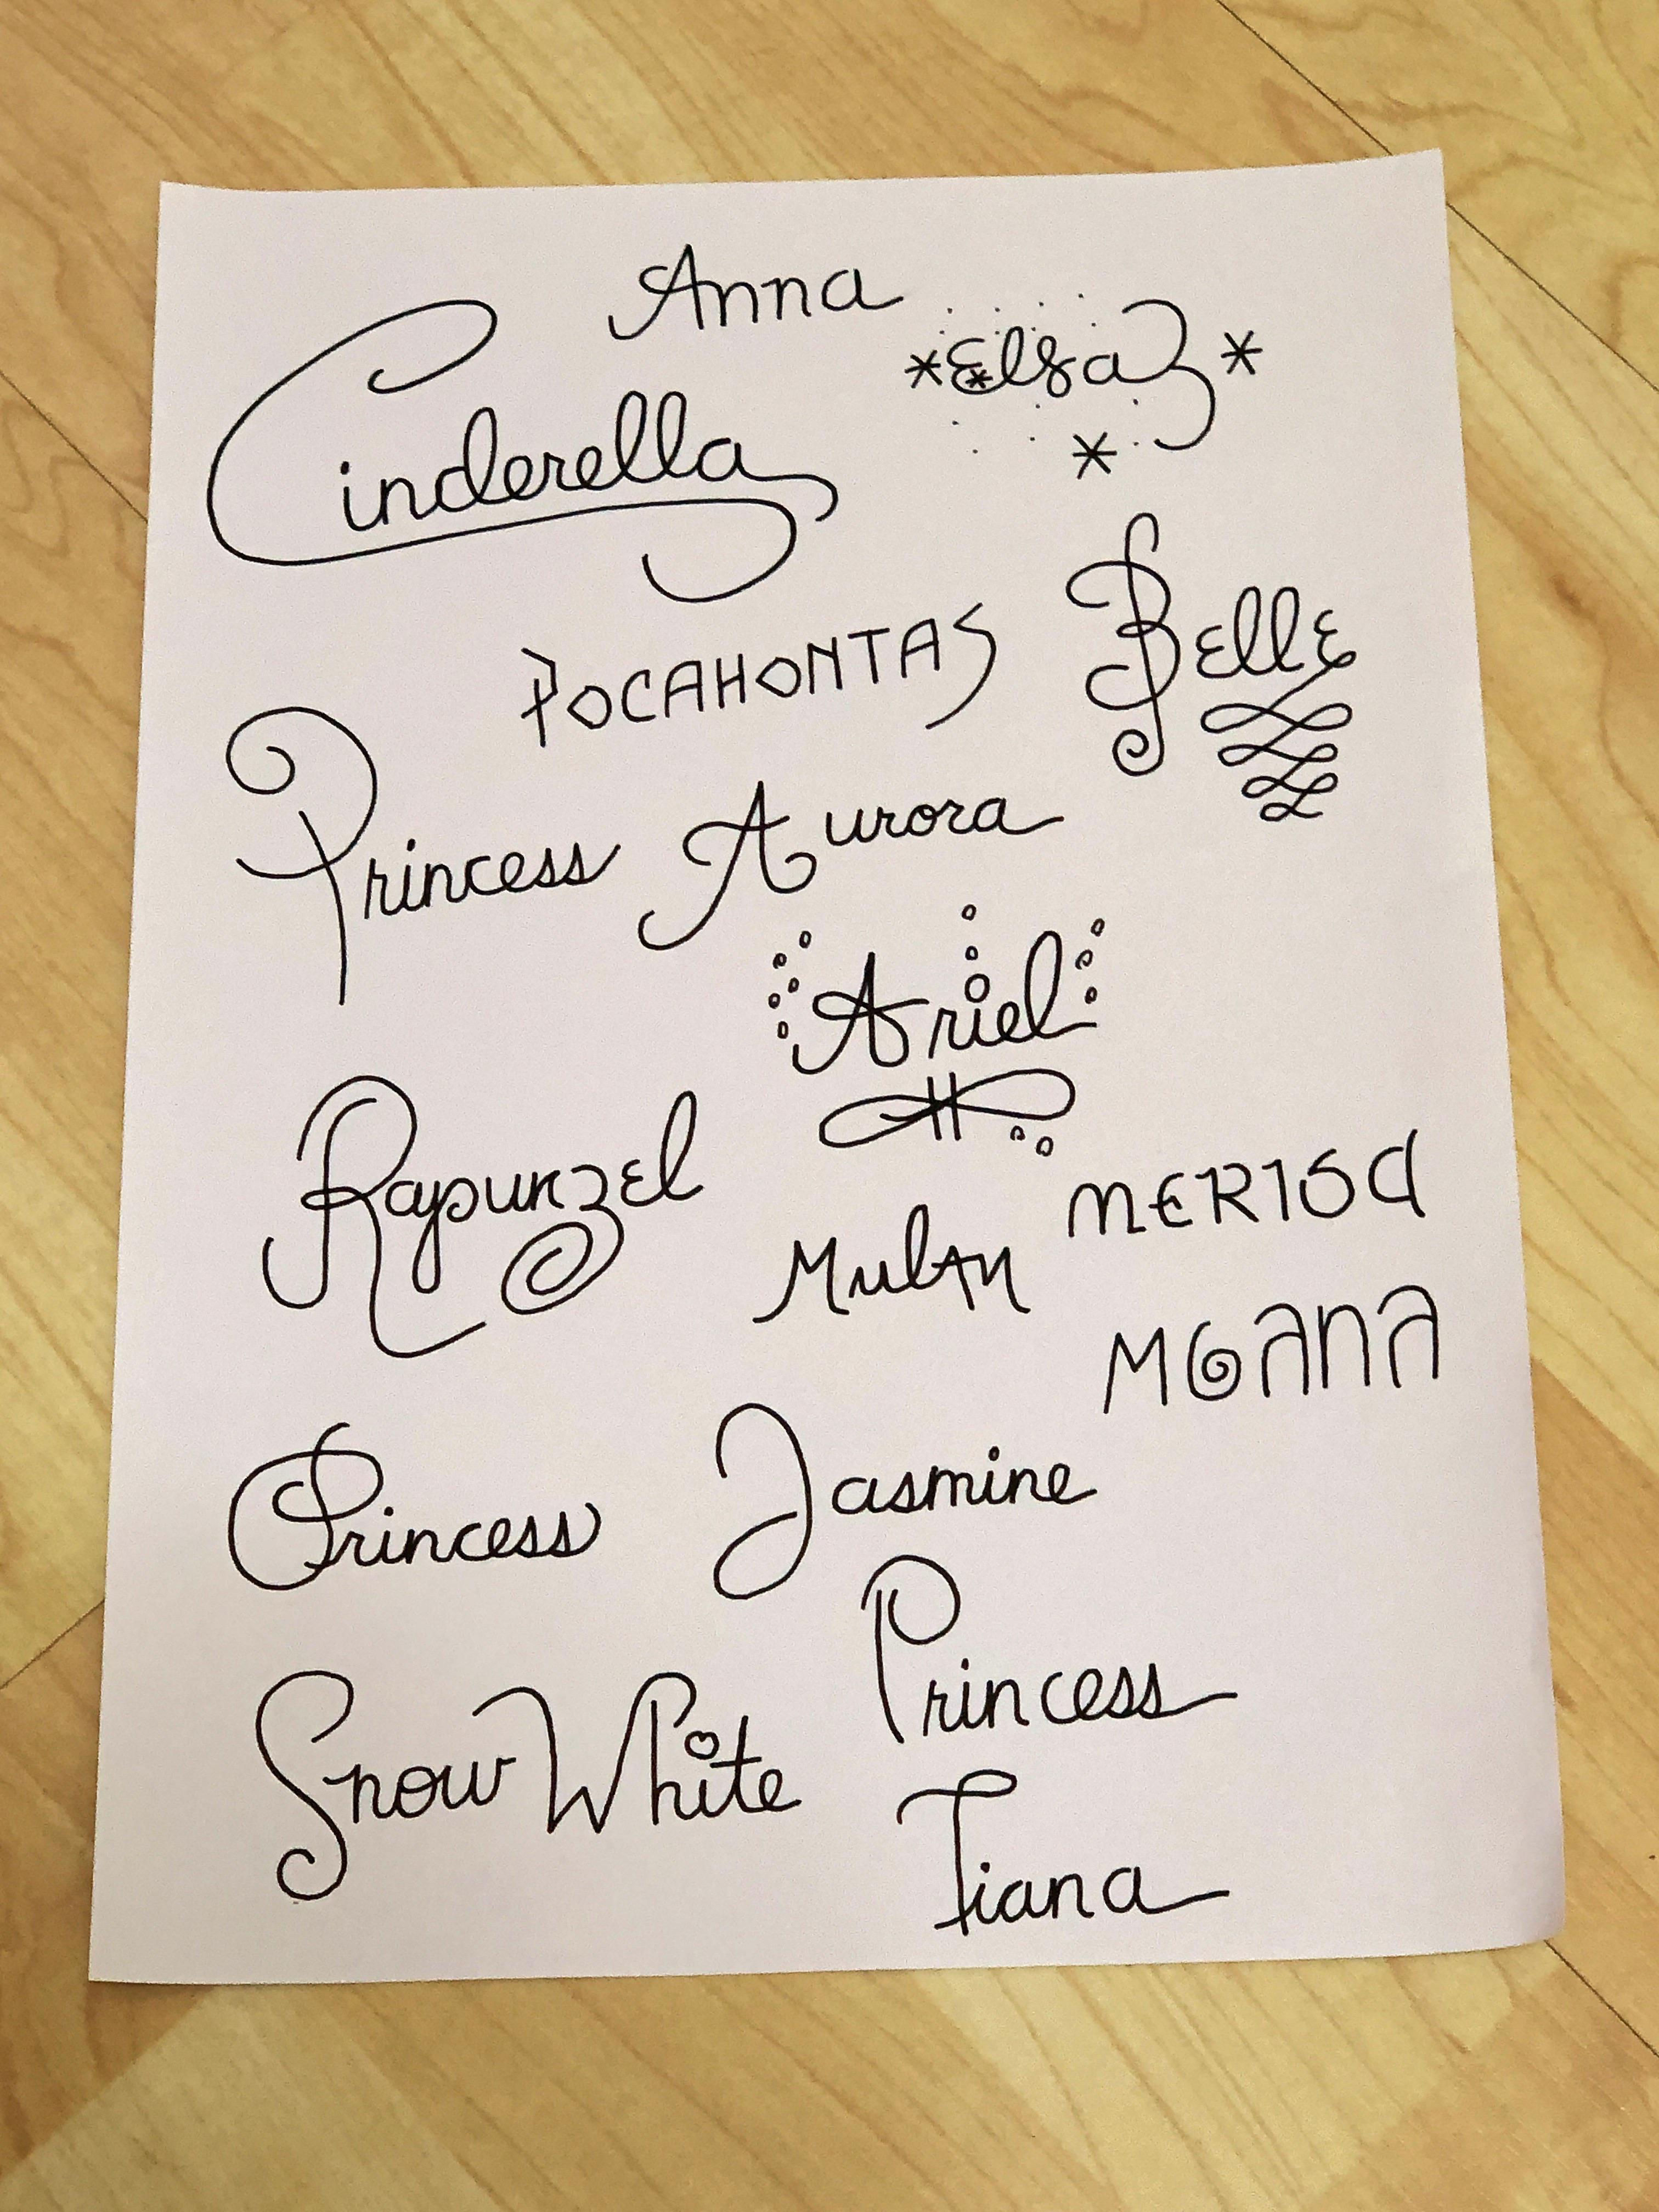 Anna
Elsa
Cinderella
Belle
POCAHONTAS
Princess Aurora
Ariel
Rapunzel
MERIDA
Mulan
MOANA
Princess Jasmine
Princess
Tiana
Snow White